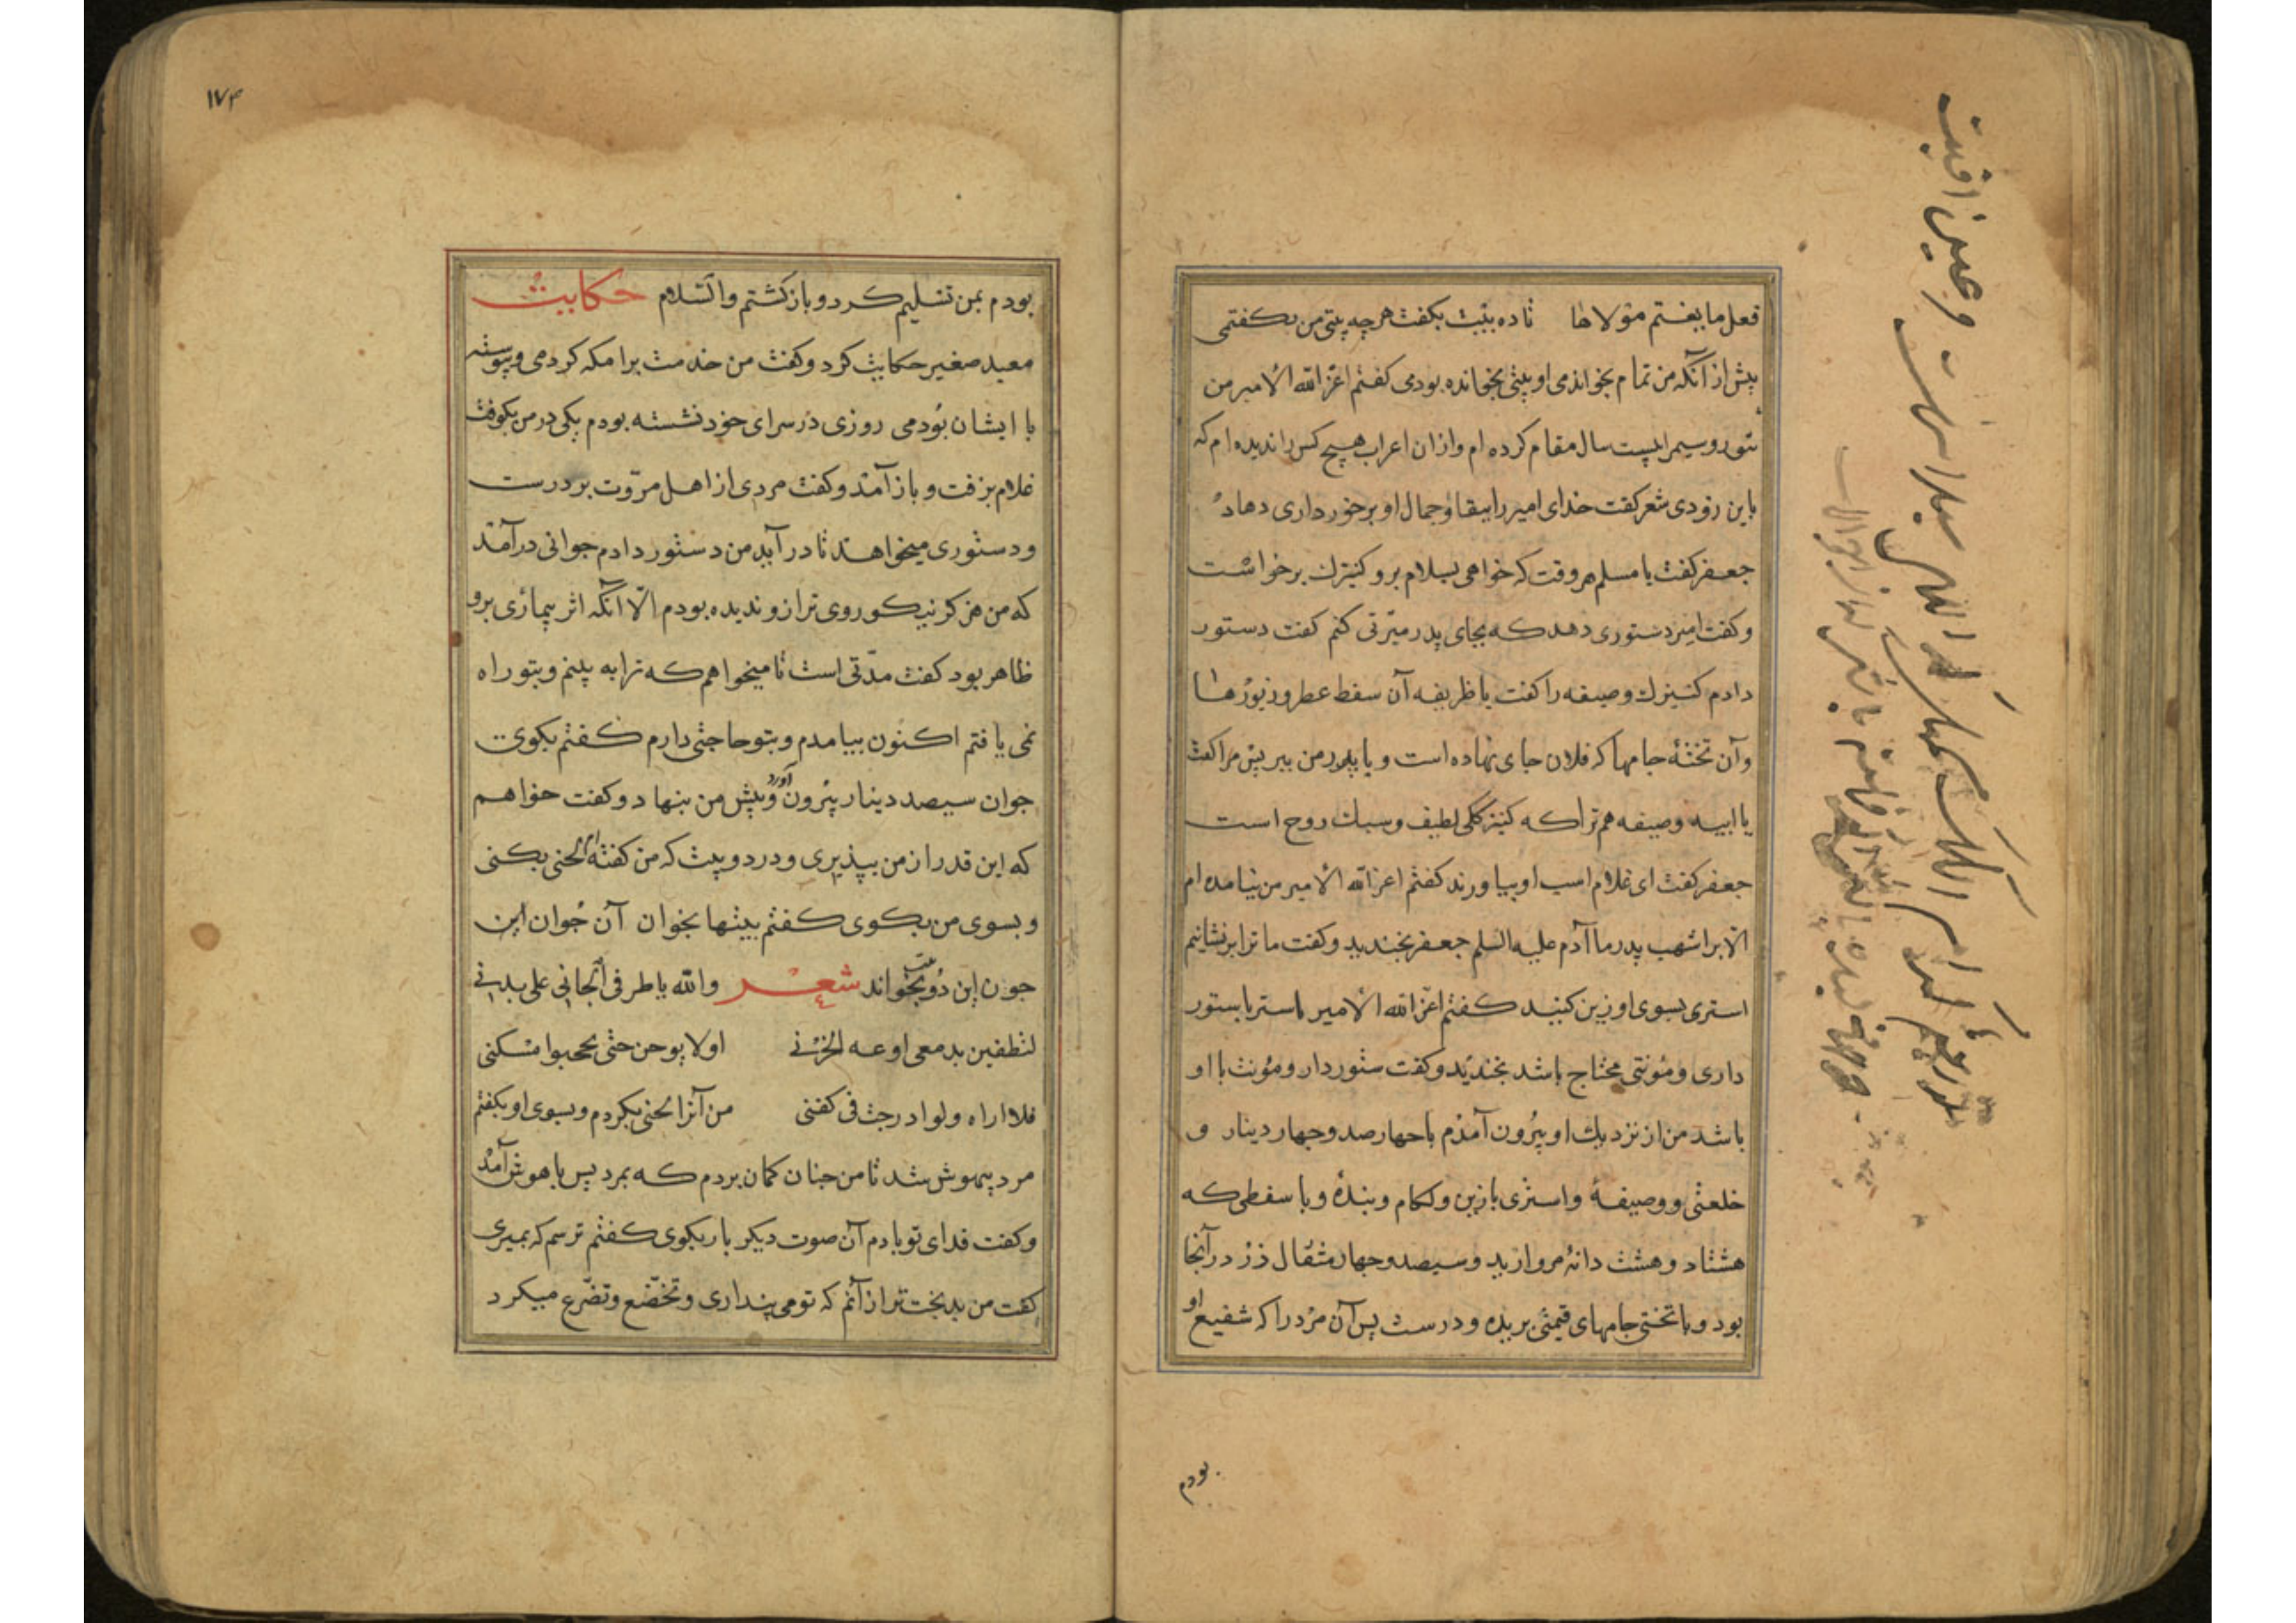 فعل ما بغیتم مولاها تا ده بیت بکفت هرچه بیتی من بکفتمی
پیش از آنکه من تمام بخواندمی او بیتی بخوانده بودمی کفتم اعز الله الأمیر من
سال مقام کرده ام و از ان اعراب هیچ کس را ندیده ام که
باین زودی شعر کفت خدای امیر را ببقا و جمال او برخورداری دهاد
جعفر کفت یا مسلم هر وقت که خواهی بسلام برو کنیزک برخواست
و کفت امیر دستوری دهد که بجای پدر مبرتی کنم کفت دستور
دادم کنیزک وصیفه را کفت یا ظریفه آن سفط عطر و زیورها
و آن تخته جامها که فلان جای نهاده است و یا پدر من ببر پس مرا کفت
یا ابیه وصیفه هم ترا که کنیزکی لطیف و سبک روح است
جعفر کفت ای غلام اسب او بیاورند کفتم اعز الله الأمیر من نیامده ام
الا بر اشهب پدر ما آدم علیه السلم جعفر بخندید و کفت ما ترا برنشانیم
استری بسوی او زین کنید کفتم اعز الله الأمیر استر با ستور
داری و مؤنتی محتاج باشد بخندید و کفت ستوردار و مؤنت با او
باشد من از نزدیک او بیرون آمدم با چهارصد و چهار دینار و
خلعتی و وصیفهٔ و استری با زین و لکام و بندهٔ و با سفطی که
هشتاد و هشت دانهٔ مروارید و سیصد و چهار مثقال زر در آنجا
بود و با تختی جامهای قیمتی بریده و درست پس آن مرد را که شفیع او
بودم
۱۷۴
بودم بمن تسلیم کرد و باز کشتم والسلام حکایت
معبد صغیر حکایت کرد و کفت من خدمت برامکه کردمی و پیوسته
با ایشان بودمی روزی در سرای خود نشسته بودم یکی در من بکوفت
غلام برفت و باز آمد و کفت مردی از اهل مروت بر درست
و دستوری میخواهد تا در آید من دستور دادم جوانی درآمد
که من هرکز نیکو روی تر ازو ندیده بودم الا آنکه اثر بیماری برو
ظاهر بود کفت مدتی است تا میخواهم که ترا به بینم و بتو راه
نمی یافتم اکنون بیامدم و بتو حاجتی دارم کفتم بکوی
جوان سیصد دینار بیرون آورد و پیش من بنهاد و کفت خواهم
که این قدر از من بپذیری و در دو بیت که من کفته ام لحنی بکنی
و بسوی من بکوی کفتم بیتها بخوان آن جوان این
چون این دو بیت بخواند شعر والله یا طرفی الجانی علی بدنی
لتطفین بدمعی لوعه الحزنی اولا یوحن حتی یحجبوا سکنی
فلا اراه ولو ادرجت فی کفنی من آنرا لحنی بکردم و بسوی او بکفتم
مرد بیهوش شد تا من چنان کمان بردم که بمرد پس با هوش آمد
و کفت فدای تو بادم آن صوت دیکر بار بکوی کفتم ترسم که بمیری
کفت من بدبخت تر از آنم که تو می پنداری و تخضع و تضرع میکرد